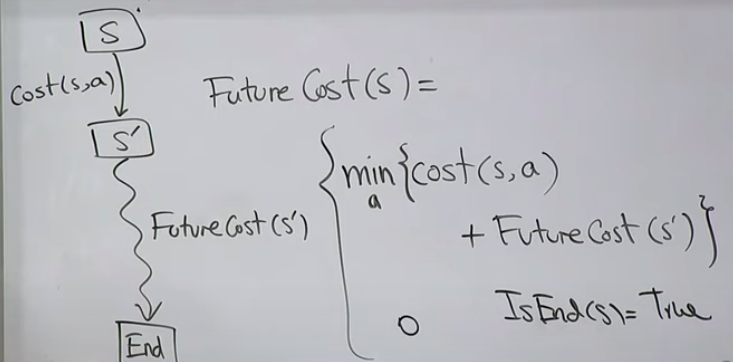 S
Cost(s,a)
S'
FutureCost(s')
End
Future Cost(s) =
min{cost(s,a)
a
+ FutureCost(s')}
0 IsEnd(s)=True